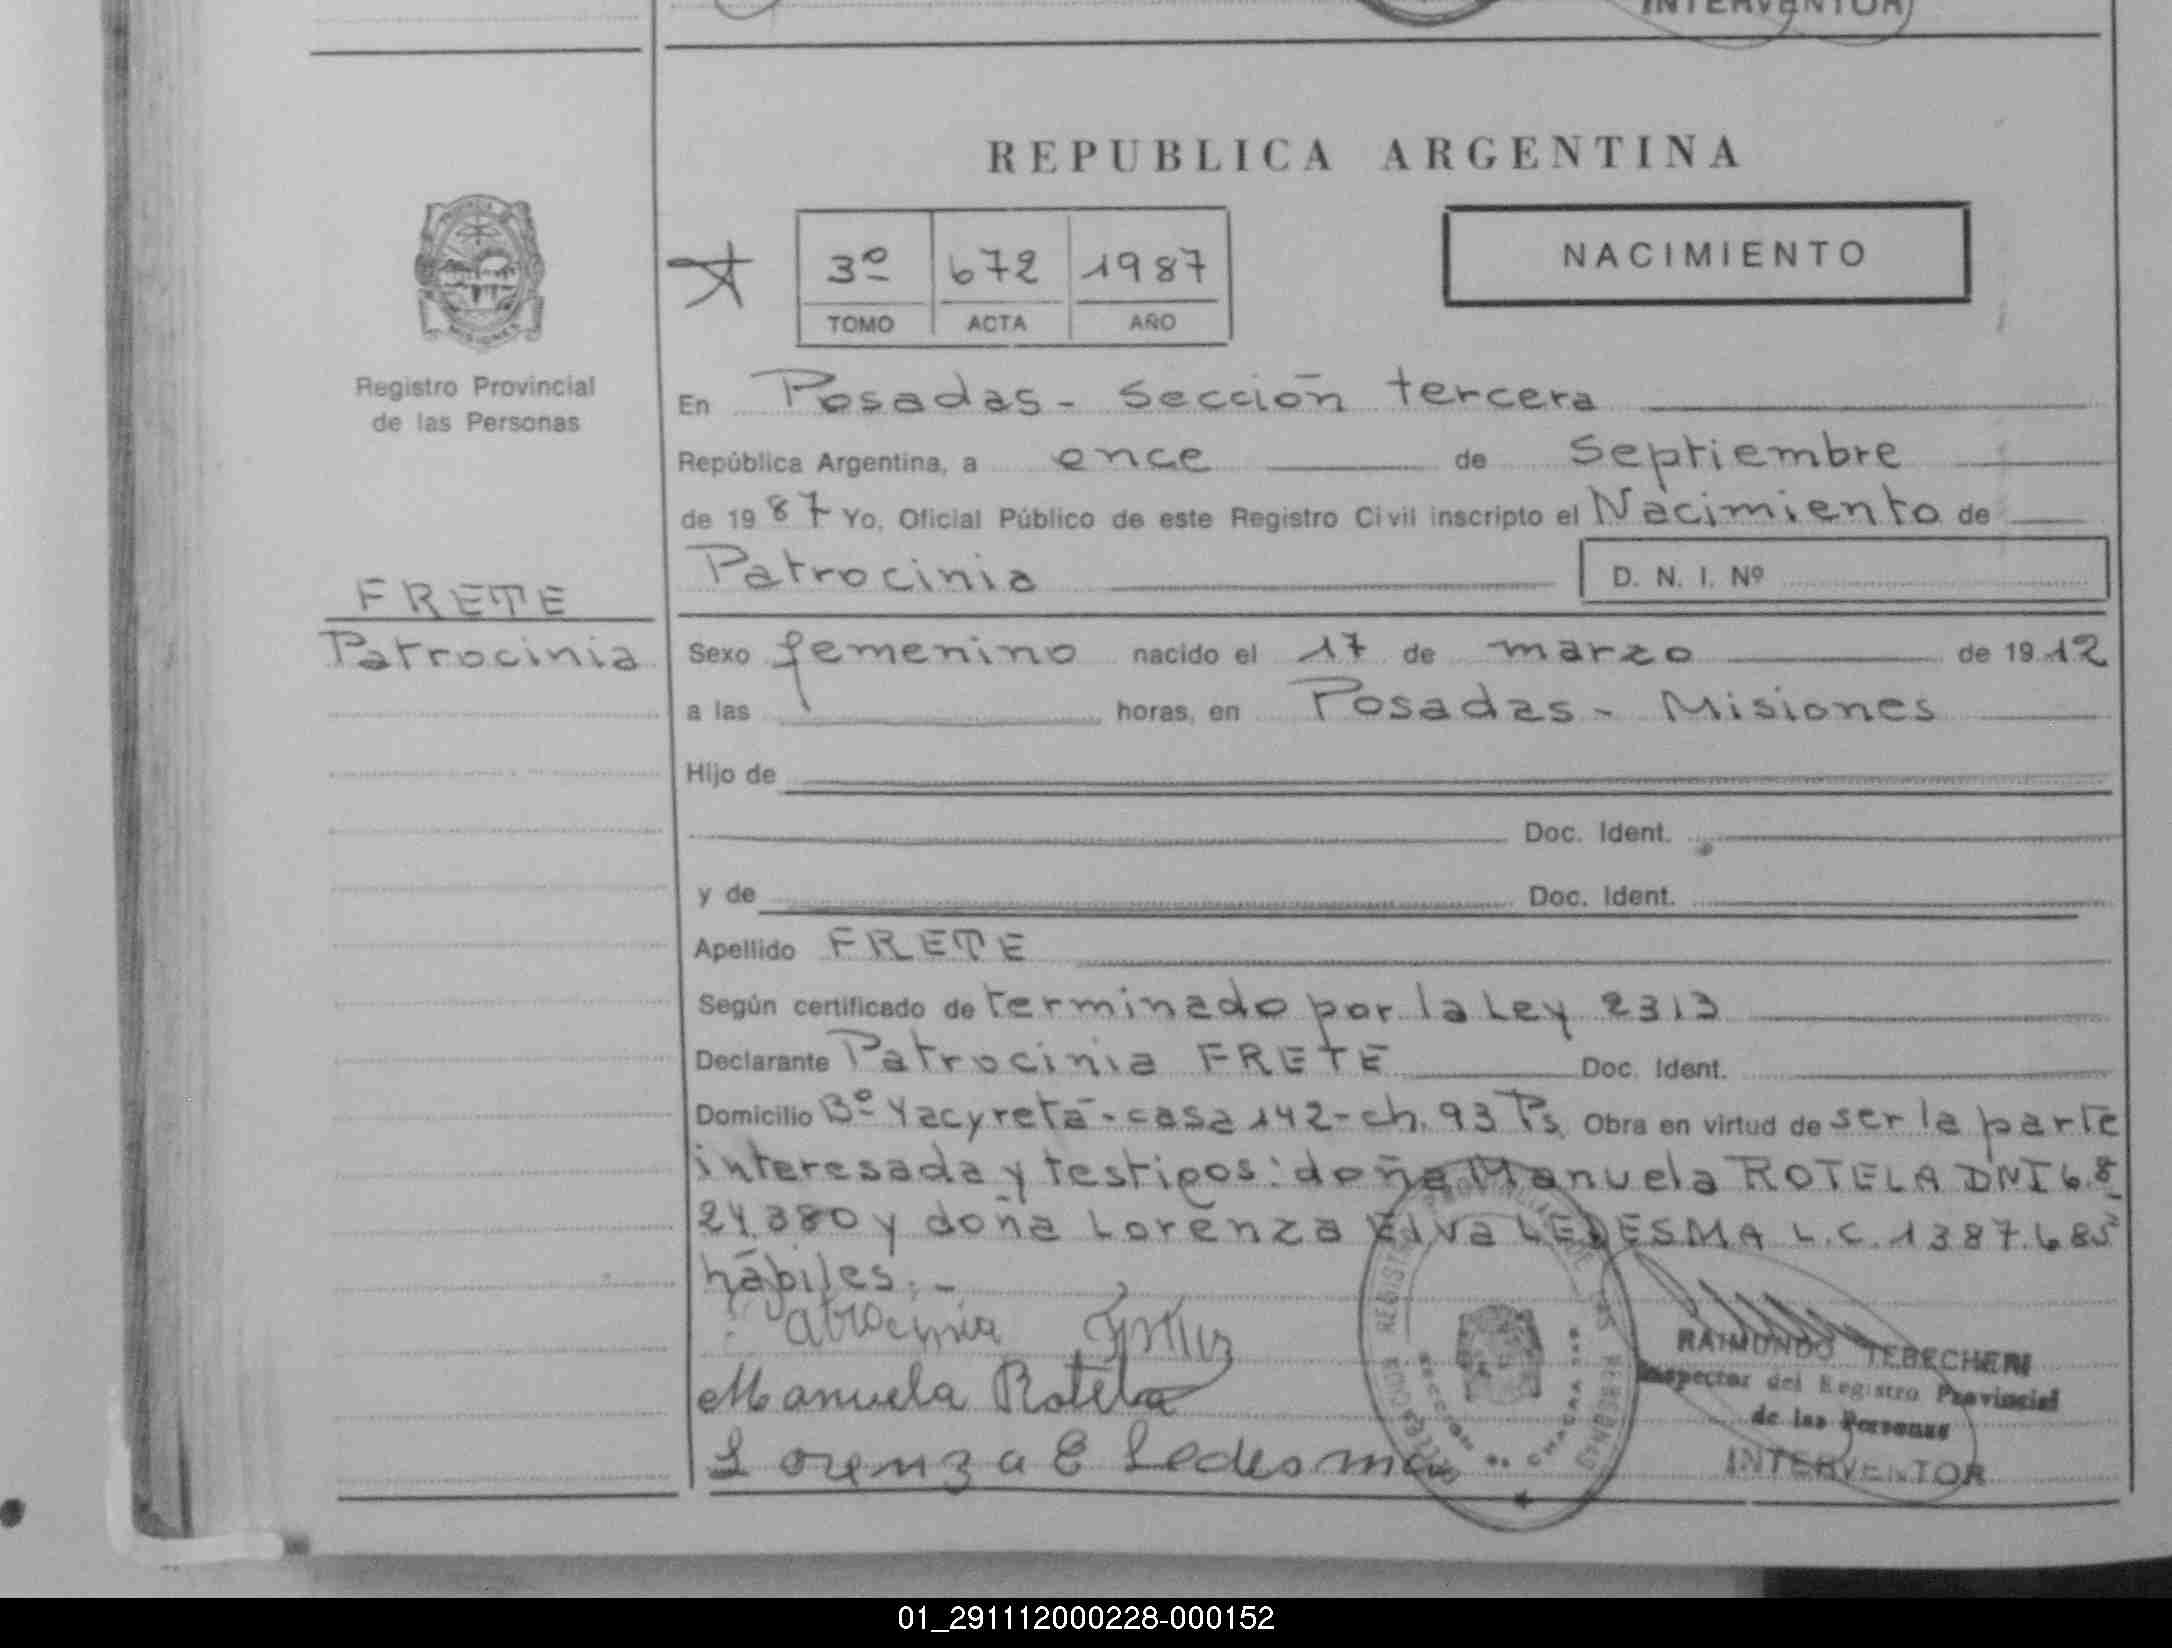 INTERVENTOR
REPUBLICA ARGENTINA
3º 672 1987
TOMO ACTA AÑO
NACIMIENTO
Registro Provincial
de las Personas
En Posadas - Sección tercera
República Argentina, a once de Septiembre
de 1987 Yo, Oficial Público de este Registro Civil inscripto el Nacimiento de
Patrocinia D. N. I. Nº
FRETE
Patrocinia
Sexo femenino nacido el 17 de marzo de 1912
a las horas, en Posadas - Misiones
Hijo de
Doc. Ident.
y de Doc. Ident.
Apellido FRETE
Según certificado de terminado por la Ley 2313
Declarante Patrocinia FRETE Doc. Ident.
Domicilio Bº Yacyretá - casa 142 - ch. 93 Ps. Obra en virtud de ser la parte
interesada y testigos: doña Manuela ROTELA DNI 6.8
24.380 y doña Lorenza Elva LEDESMA L.C. 1387.685
hábiles. -
Patrocinia
Manuela Rotela
Lorenza E Ledesma
RAIMUNDO TEBECHERI
Inspector del Registro Provincial
de las Personas
INTERVENTOR
01_291112000228-000152